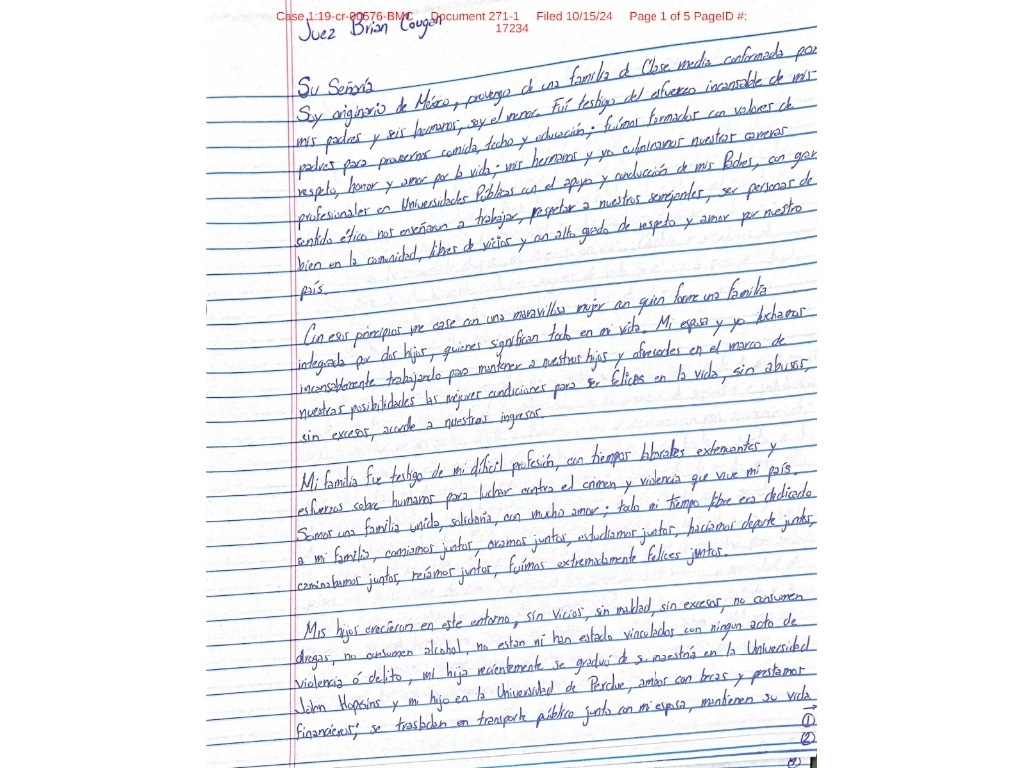 Case 1:19-cr-00576-BMC Document 271-1 Filed 10/15/24 Page 1 of 5 PageID #: 17234
Juez Brian Cougan
Su Señoría
Soy originario de México, provengo de una familia de Clase media conformada por
mis padres y seis hermanos, soy el menor. Fuí testigo del esfuerzo incansable de mis
padres para proveernos comida, techo y educación; fuímos formados con valores de
respeto, honor y amor por la vida; mis hermanos y yo culminamos nuestras carreras
profesionales en Universidades Públicas con el apoyo y conducción de mis Padres, con gran
sentido ético nos enseñaron a trabajar, respetar a nuestros semejantes, ser personas de
bien en la comunidad, libres de vicios y con alto grado de respeto y amor por nuestro
país.
Con esos principios me case con una maravillosa mujer con quien forme una familia
integrada por dos hijos, quienes significan todo en mi vida. Mi esposa y yo luchamos
incansablemente trabajando para mantener a nuestros hijos y ofrecerles en el marco de
nuestras posibilidades las mejores condiciones para ser felices en la vida, sin abusos,
sin excesos, acorde a nuestros ingresos.
Mi familia fue testigo de mi difícil profesión, con tiempos laborales extenuantes y
esfuerzos sobre humanos para luchar contra el crimen y violencia que vive mi país.
Somos una familia unida, solidaria, con mucho amor; todo mi tiempo libre era dedicado
a mi familia, comíamos juntos, oramos juntos, estudiamos juntos, hacíamos deporte juntos,
caminabamos juntos, reíamos juntos, fuímos extremadamente felices juntos.
Mis hijos crecieron en este entorno, sín vicios, sin maldad, sin excesos, no consumen
drogas, no consumen alcohol, no estan ni han estado vinculados con ningun acto de
violencia ó delito, mi hija recientemente se graduó de su maestría en la Universidad
John Hopsins y mi hijo en la Universidad de Perdue, ambos con becas y prestamos
financieros; se trasladan en transporte público junto con mi esposa, mantienen su vida
→
①
②